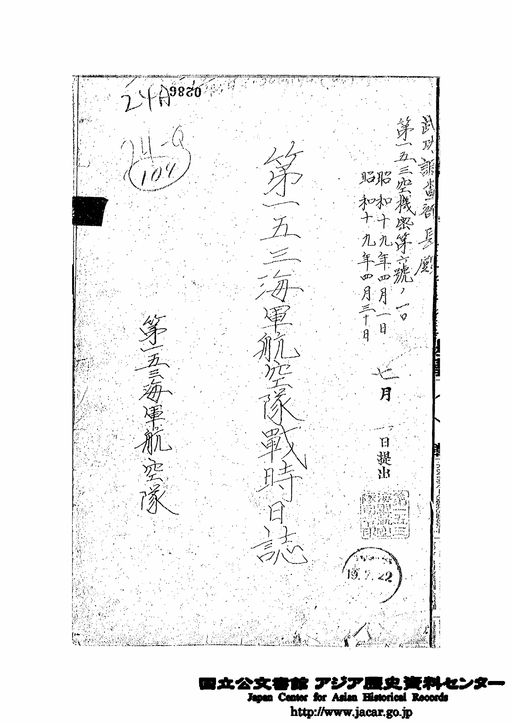 24A
0286
24-Q
107
第一五三空機密第六號ノ一〇
昭和十九年四月一日
昭和十九年四月三十日
七月
日提出
第一五三海軍航空隊戰時日誌
第一五三海軍航空隊
19.7.22
国立公文書館 アジア歴史資料センター
Japan Center for Asian Historical Records
http://www.jacar.go.jp